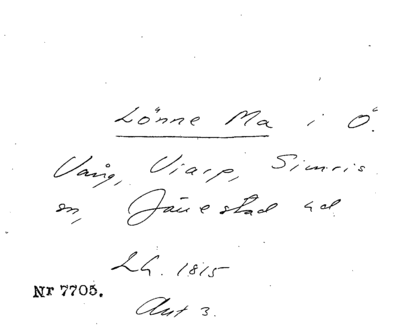 Lönne Ma i Ö.
Vång, Viarp, Simris
sn, Järrestad hd
LH. 1815
Nr 7705.
Akt 3.